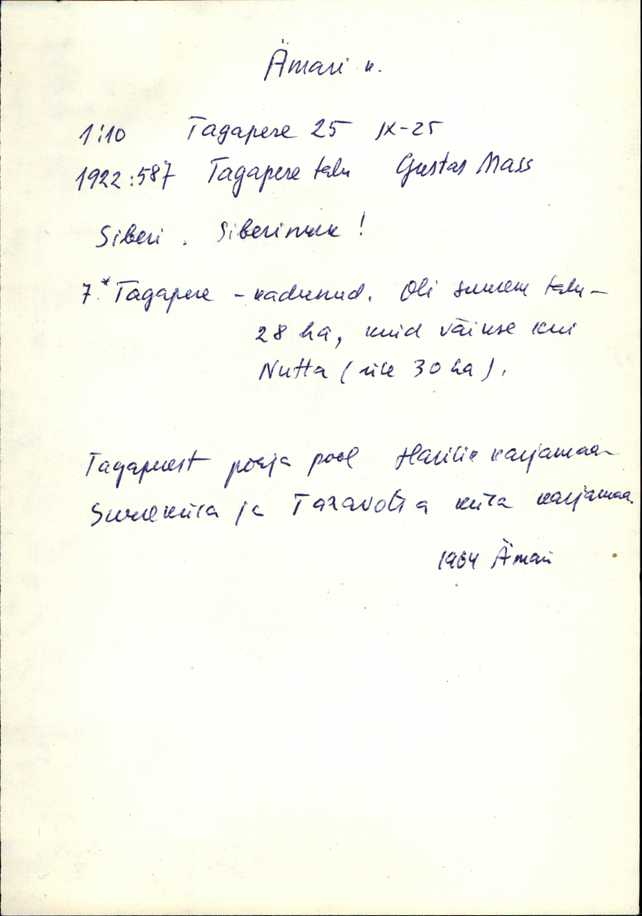 Ämari k.
1:10 Tagapere 25 IX-25
1922:587 Tagapere talu Gustav Mass
Siberi. Siberimäe!
7.* Tagapere – kadunud. Oli suurem talu –
28 ha, kuid väikse kui
Nutta (üle 30 ha).
Tagaperest põhja pool Harilik karjamaa –
Suurekula ja Taravotka küla karjamaa
1984 Ämari